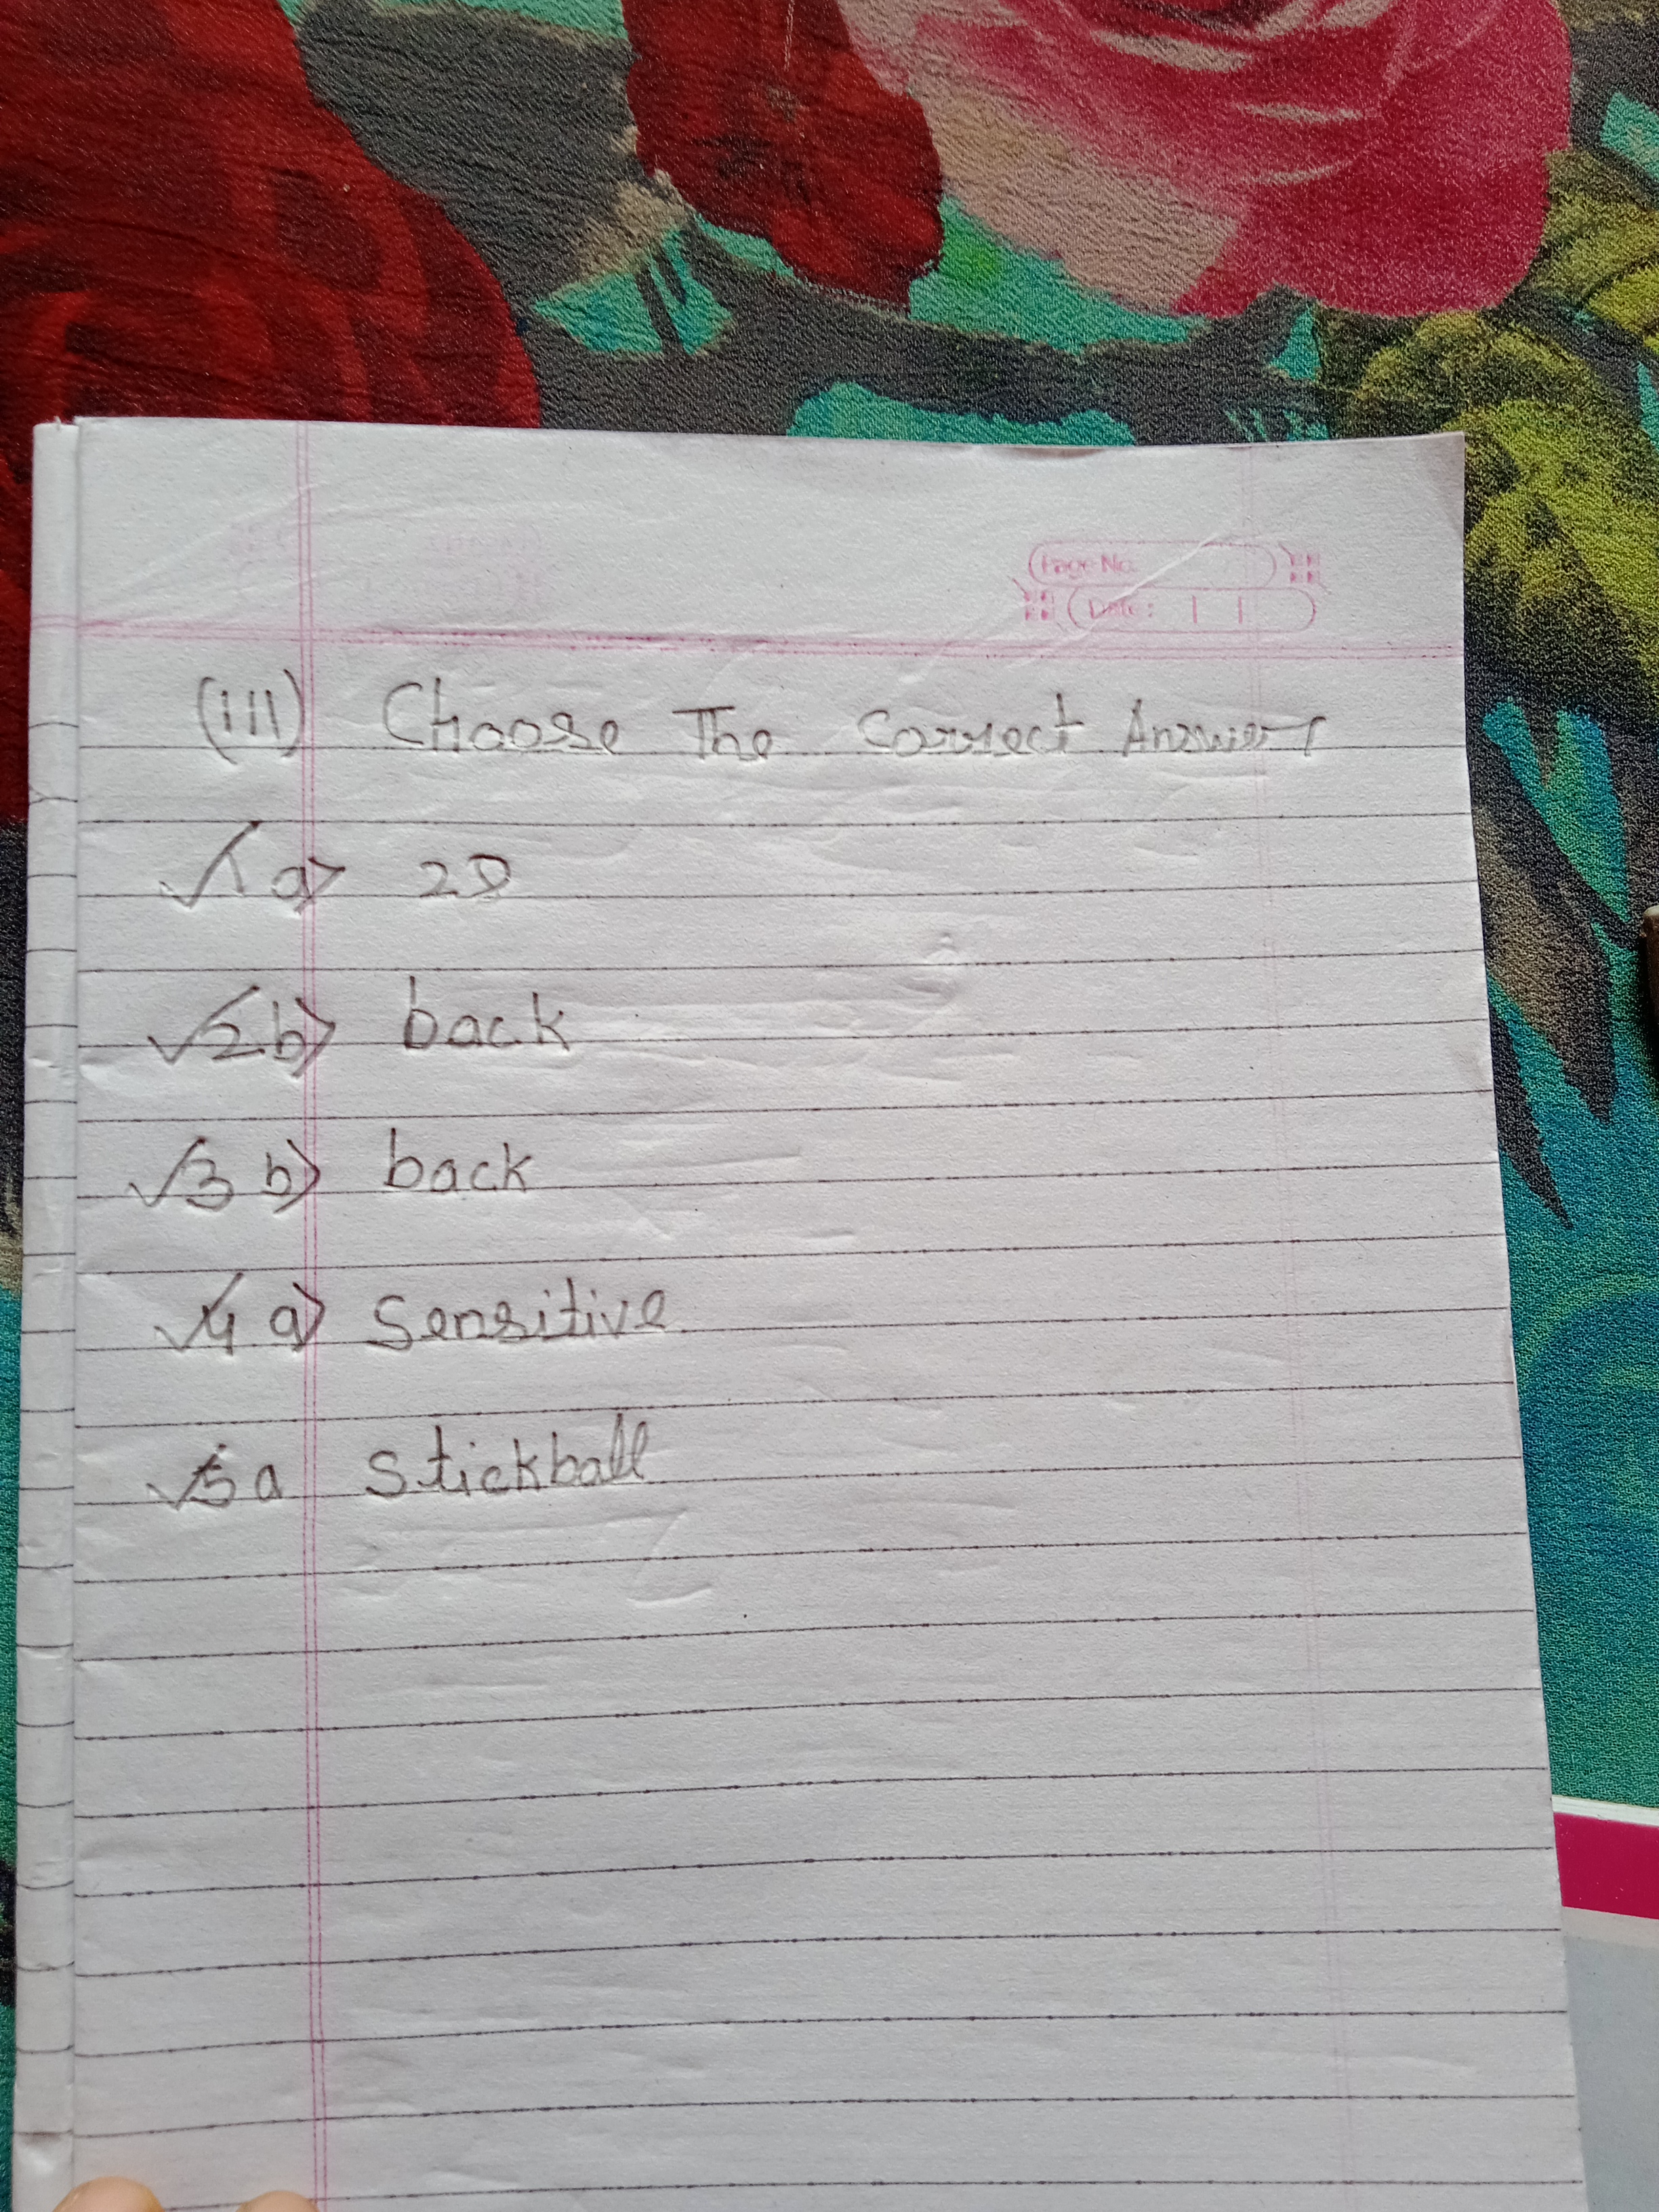 Page No.
Date:
(III) Choose The Correct Answer
1 a) 28
2 b) back
3 b) back
4 a) Sensitive
5 a stickball